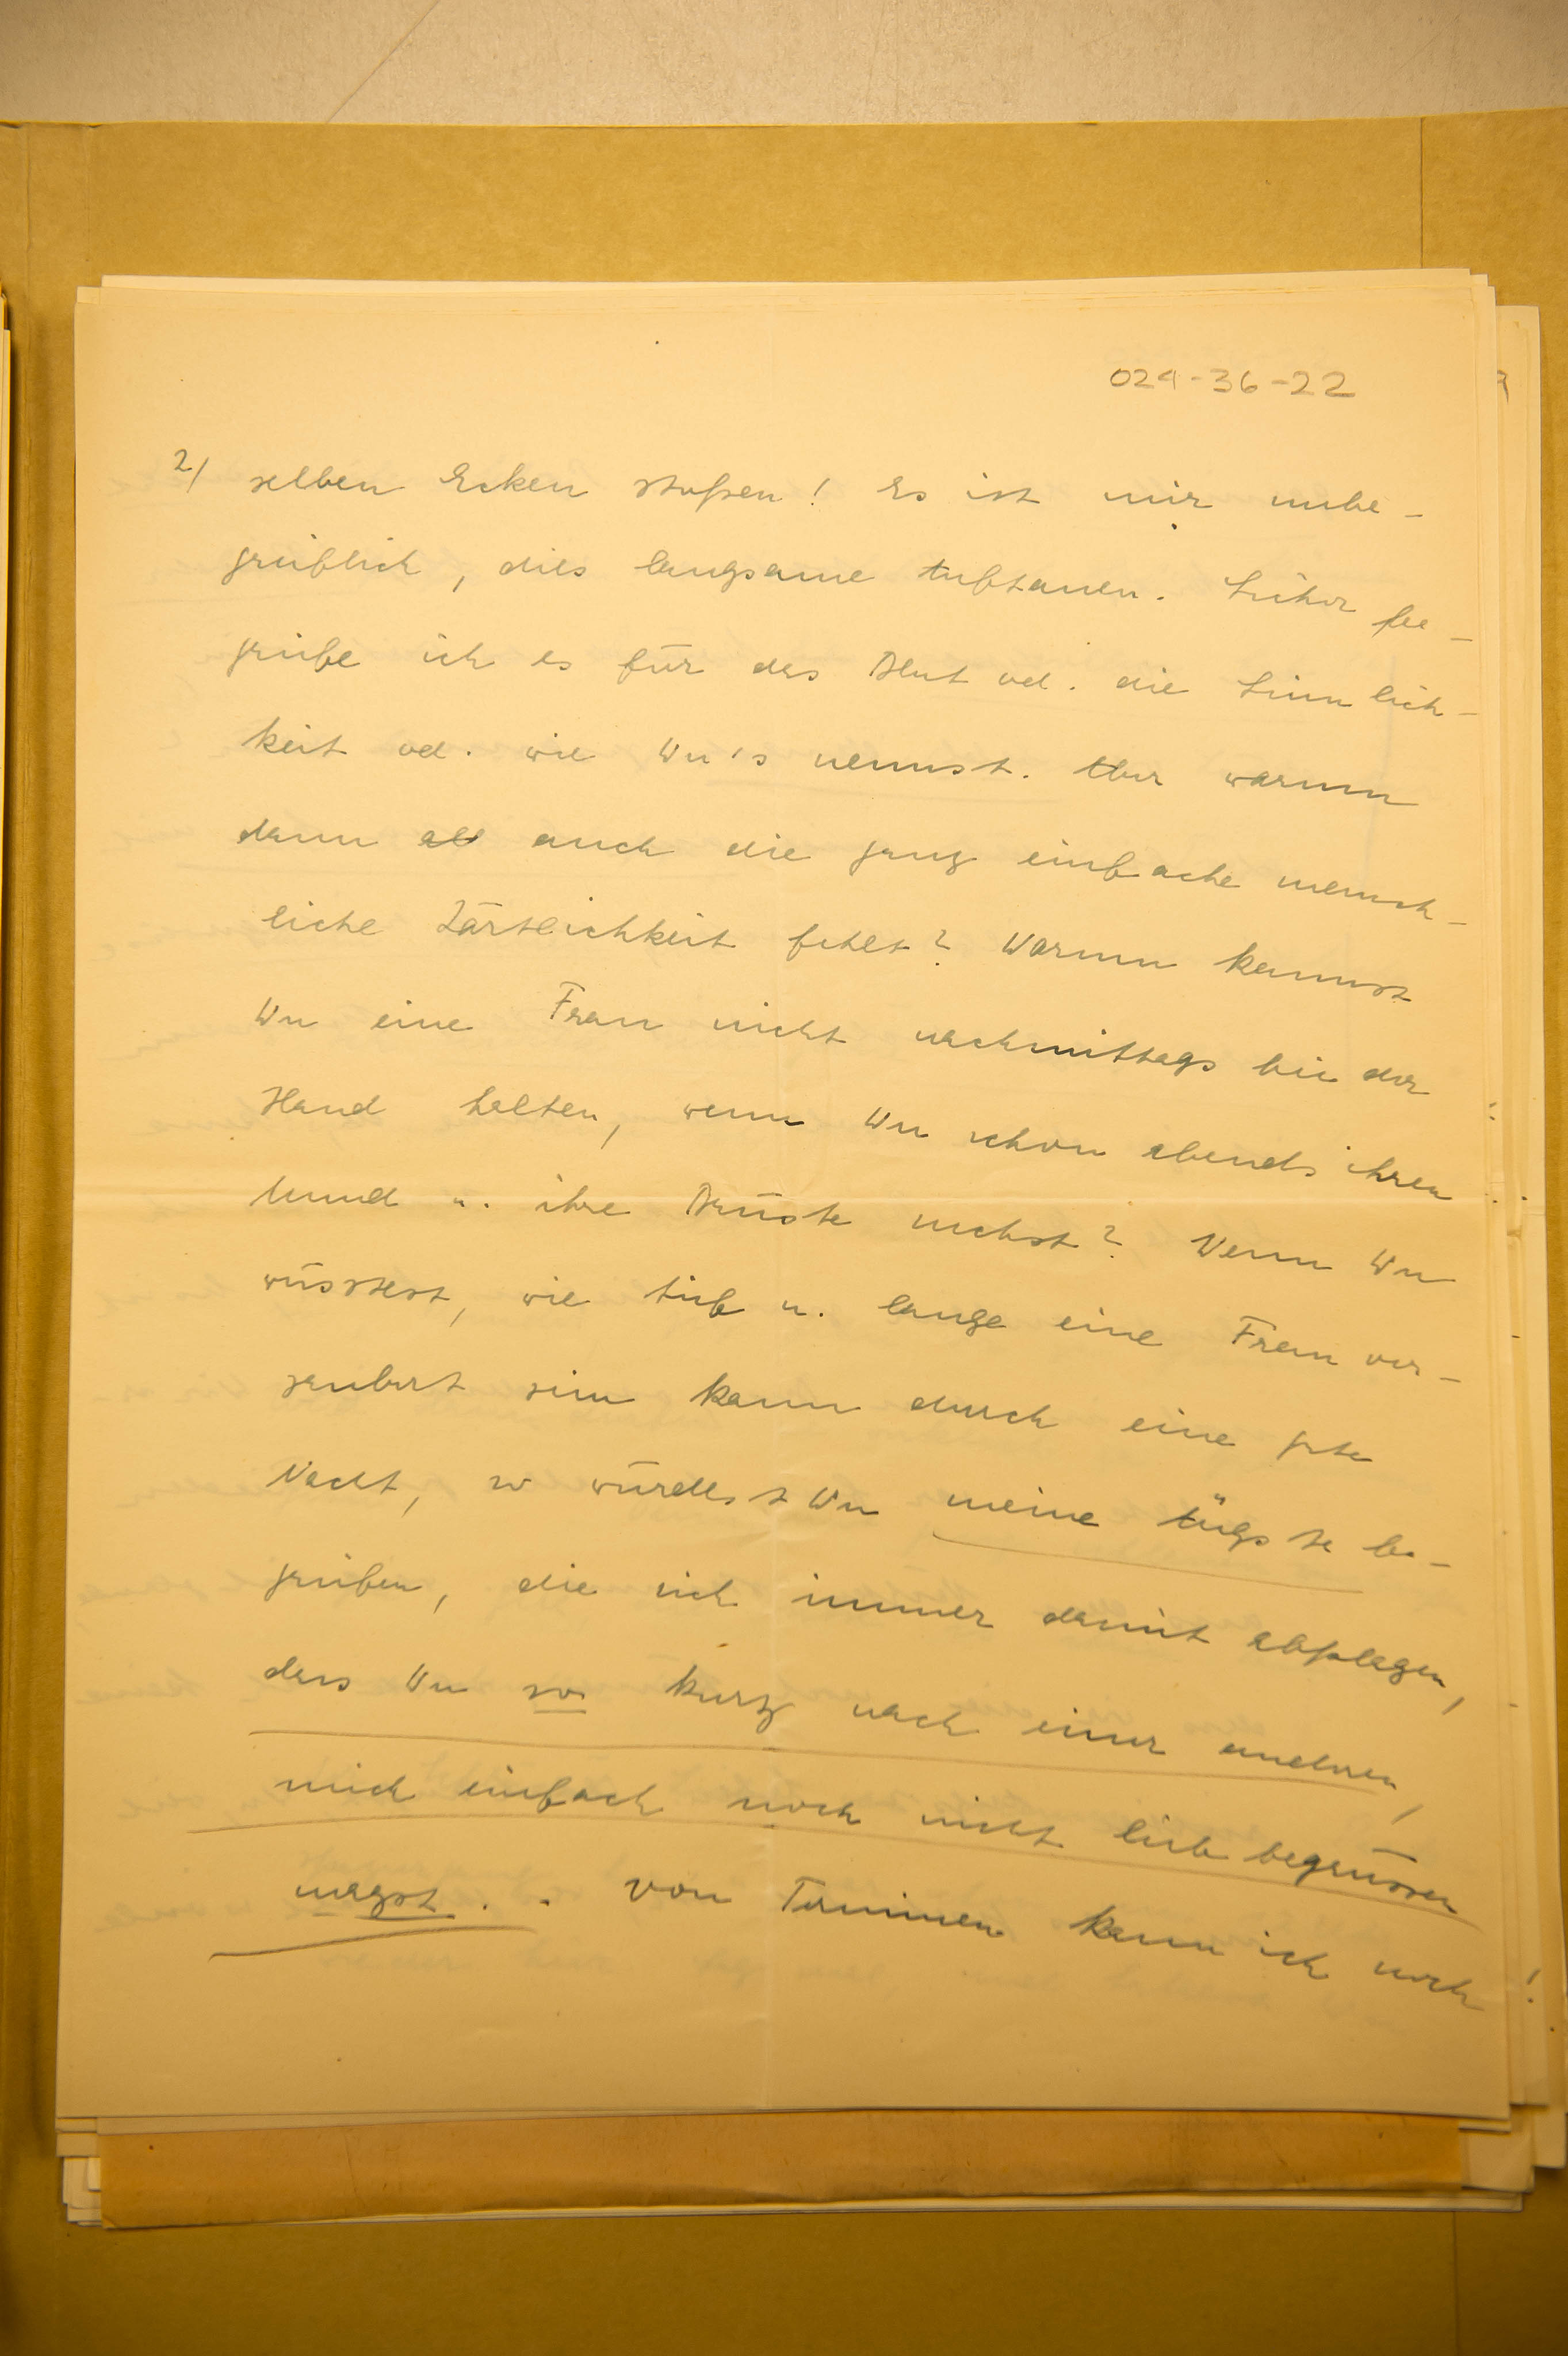 024-36-22
2/ selben Ecken stoßen! Es ist mir unbe-
greiflich, dies langsame Auftauen. Sicher be-
greife ich es für das Blut od. die Sinnlich-
keit od. wie Du's nennst. Aber warum
dann auch die ganz einfache mensch-
liche Zärtlichkeit fehlt? Warum kannst
Du eine Frau nicht nachmittags bei der
Hand halten, wenn Du schon abends ihren
Mund u. ihre Brüste suchst? Wenn Du
wüsstest, wie tief u. lange eine Frau ver-
zaubert sein kann durch eine gute
Nacht, so würdest Du meine Ängste be-
greifen, die sich immer damit abplagen,
dass Du so kurz nach einer anderen,
mich einfach noch nicht lieb begrüssen
magst. . Von Terminen kann ich noch